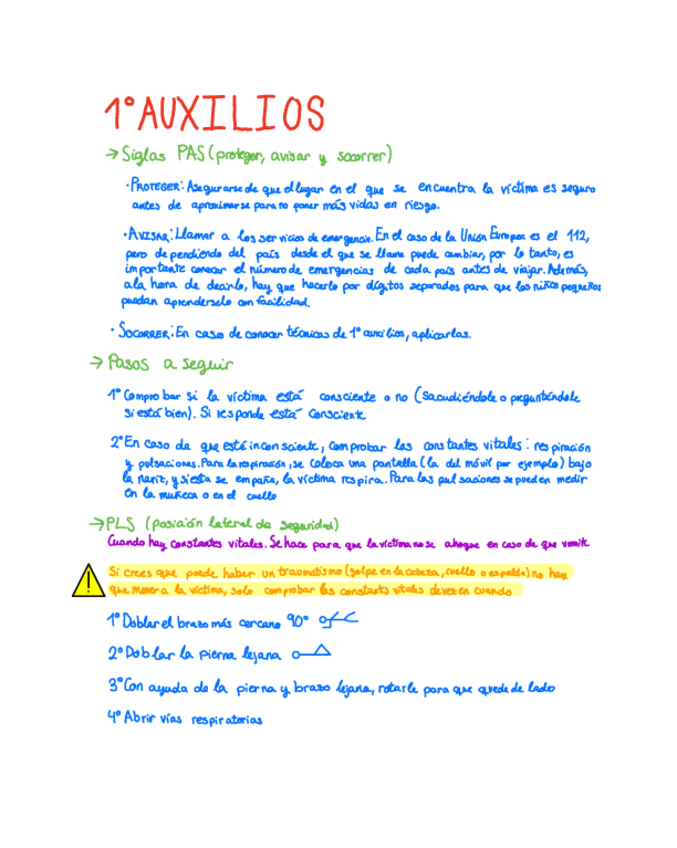 1º AUXILIOS
→ Siglas PAS (proteger, avisar y socorrer)
· PROTEGER: Asegurarse de que el lugar en el que se encuentra la víctima es seguro
antes de aproximarse para no poner más vidas en riesgo.
· AVISAR: Llamar a los servicios de emergencia. En el caso de la Unión Europea es el 112,
pero dependiendo del país desde el que se llame puede cambiar, por lo tanto, es
importante conocer el número de emergencias de cada país antes de viajar. Además,
a la hora de decirlo, hay que hacerlo por dígitos separados para que los niños pequeños
puedan aprendérselo con facilidad.
· SOCORRER: En caso de conocer técnicas de 1º auxilios, aplicarlas.
→ Pasos a seguir
1º Comprobar si la víctima está consciente o no (sacudiéndole o preguntándole
si está bien). Si responde está consciente
2º En caso de que esté inconsciente, comprobar las constantes vitales: respiración
y pulsaciones. Para la respiración, se coloca una pantalla (la del móvil por ejemplo) bajo
la nariz, y si esta se empaña, la víctima respira. Para las pulsaciones se pueden medir
en la muñeca o en el cuello
→ PLS (posición lateral de seguridad)
Cuando hay constantes vitales. Se hace para que la víctima no se ahogue en caso de que vomite
Si crees que puede haber un traumatismo (golpe en la cabeza, cuello o espalda) no hay
que mover a la víctima, solo comprobar las constants vitales de vez en cuando
1º Doblar el brazo más cercano 90º
2º Doblar la pierna lejana
3º Con ayuda de la pierna y brazo lejana, rotarle para que quede de lado
4º Abrir vías respiratorias